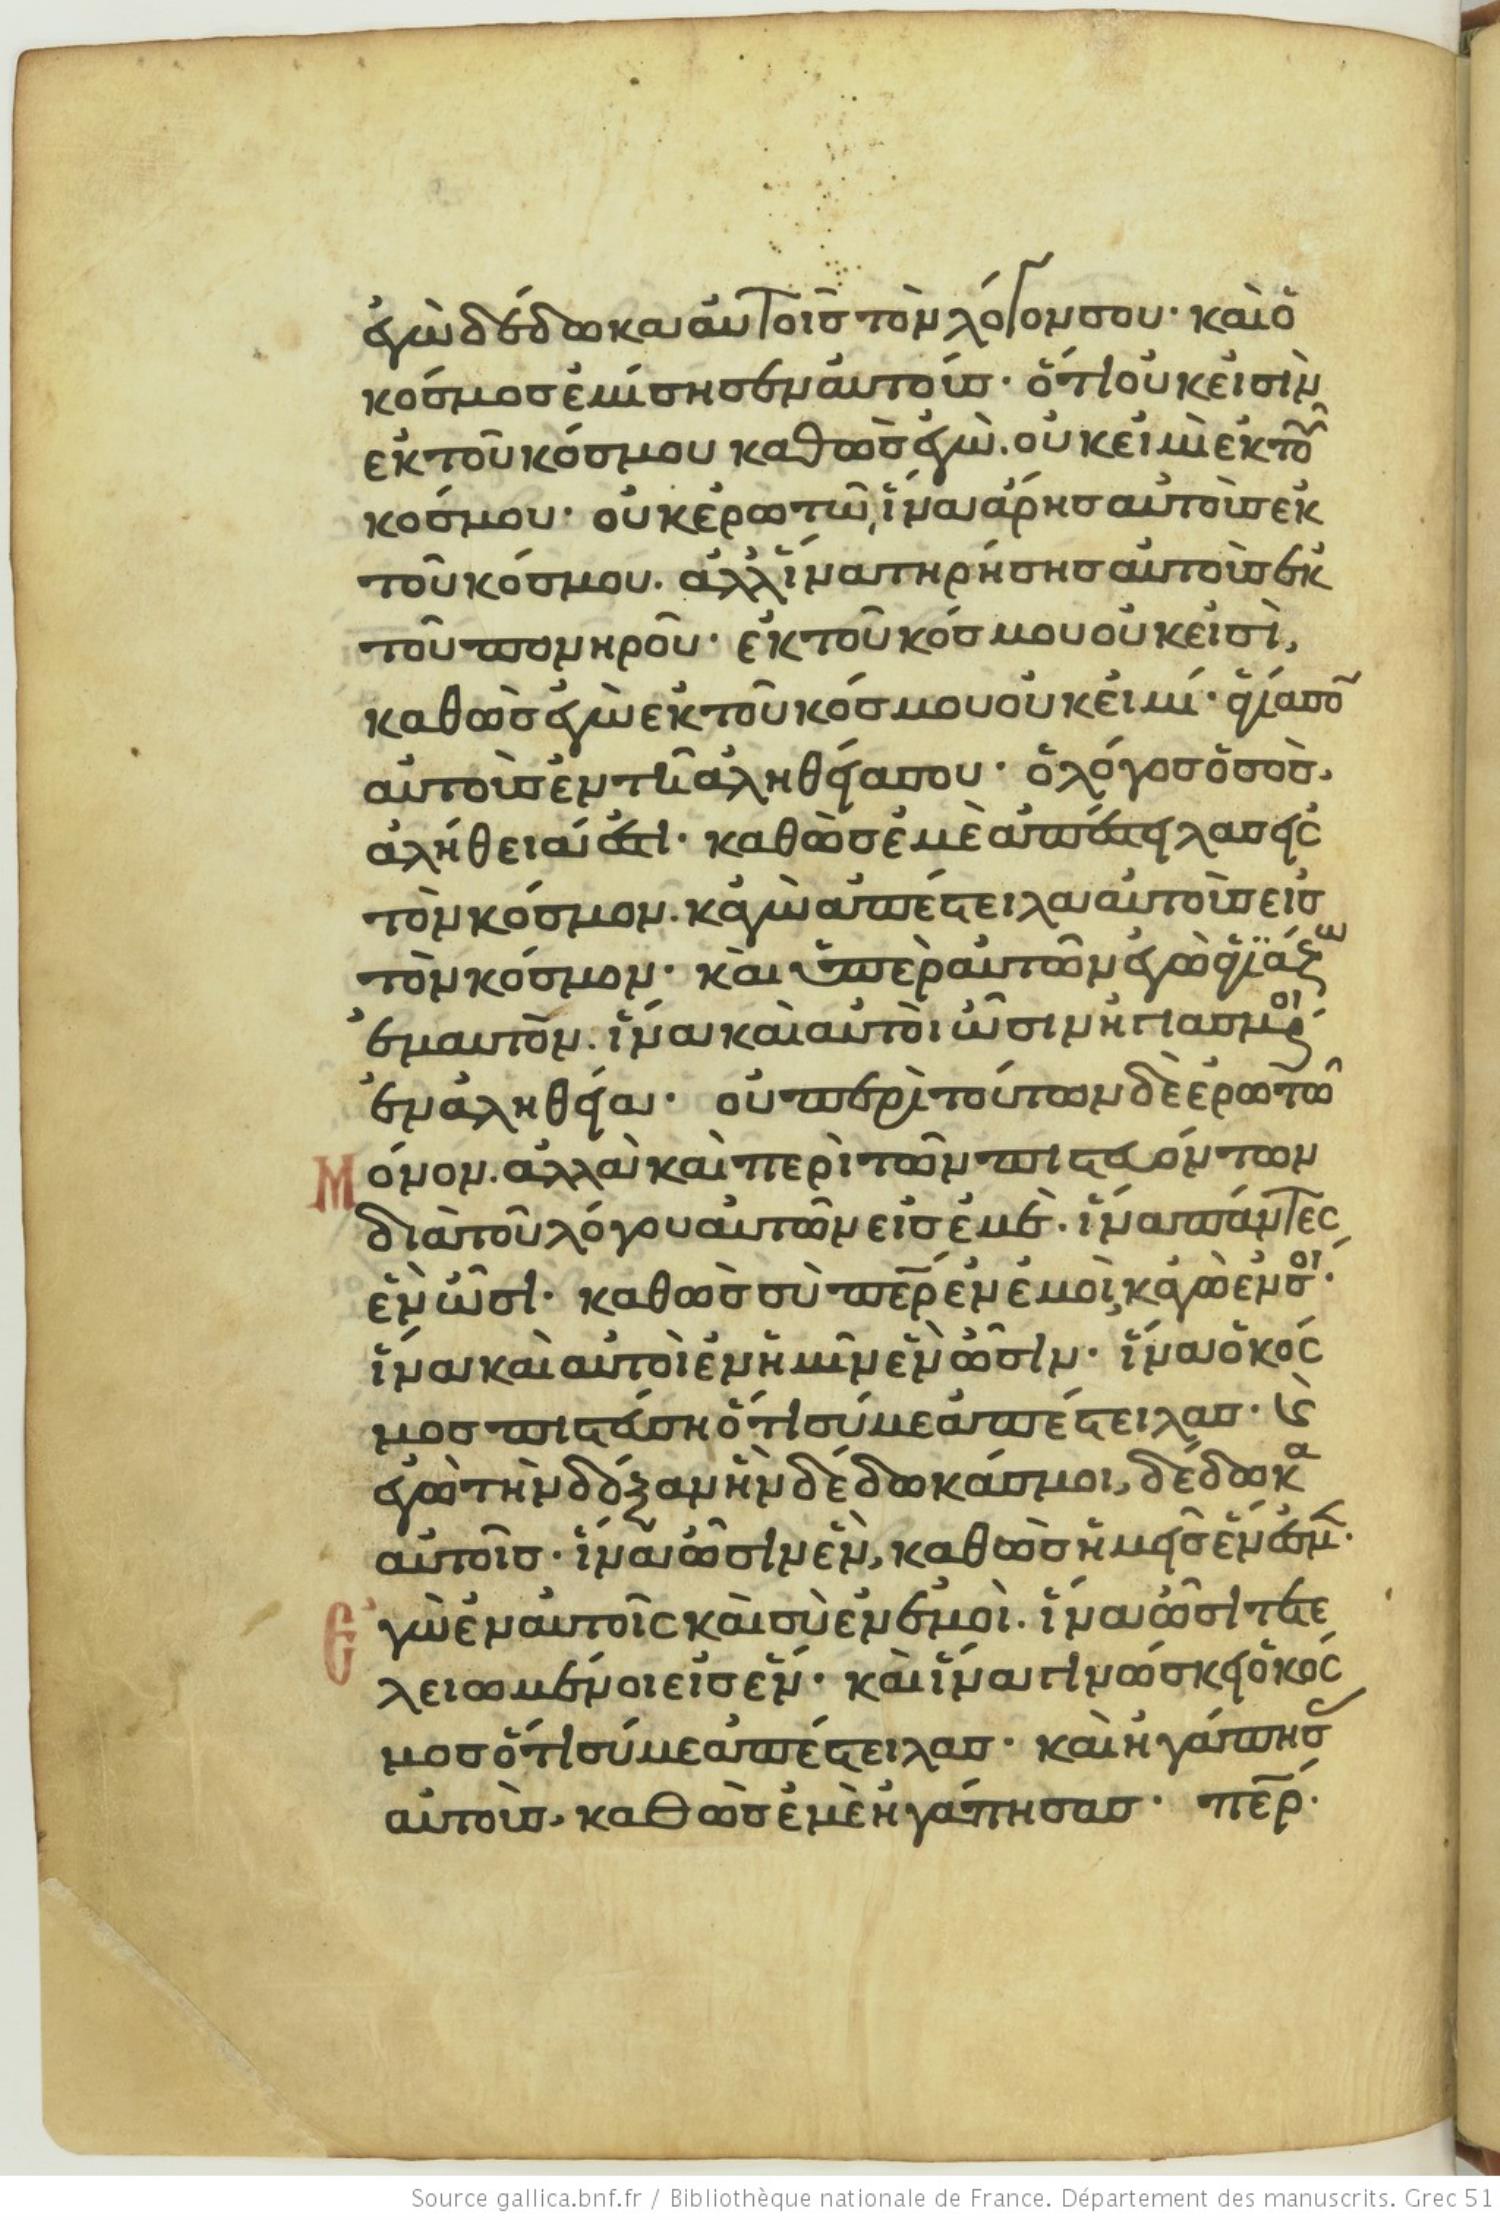 ἐγὼ δέδωκα αὐτοῖς τὸν λόγον σου· καὶ ὁ
κόσμος ἐμίσησεν αὐτούς· ὅτι οὐκ εἰσὶν
ἐκ τοῦ κόσμου καθὼς ἐγὼ. οὐκ εἰμὶ ἐκ τοῦ
κόσμου· οὐκ ἐρωτῶ, ἵνα ἄρῃς αὐτοὺς ἐκ
τοῦ κόσμου. ἀλλ ἵνα τηρήσῃς αὐτοὺς ἐκ
τοῦ πονηροῦ· ἐκ τοῦ κόσμου οὐκ εἰσὶ,
καθὼς ἐγὼ ἐκ τοῦ κόσμου οὐκ εἰμί· ἁγίασον
αὐτοὺς ἐν τῇ ἀληθείᾳ σου· ὁ λόγος ὁ σὸς,
ἀλήθεια ἐστι· καθὼς ἐμὲ ἀπέστειλας εἰς
τὸν κόσμον. κἀγὼ ἀπέστειλα αὐτοὺς εἰς
τὸν κόσμον· καὶ ὑπὲρ αὐτῶν ἐγὼ ἁγϊάζω
ἐμαυτὸν. ἵνα καὶ αὐτοὶ ὦσιν ἡγιασμένοι
ἐν ἀληθείᾳ· οὐ περὶ τούτων δὲ ἐρωτῶ
Μόνον. ἀλλὰ καὶ περὶ τῶν πιστευόντων
διὰ τοῦ λόγου αὐτῶν εἰς ἐμὲ. ἵνα πάντες
ἓν ὦσι· καθὼς σὺ περ ἐν ἐμοὶ, κἀγὼ ἐν σοί·
ἵνα καὶ αὐτοὶ ἐν ἡμῖν ἓν ὦσιν· ἵνα ὁ κός
μος πιστεύσῃ ὅτι σύ με ἀπέστειλας· καὶ
ἐγὼ τὴν δόξαν ἣν δέδωκάς μοι, δέδωκα
αὐτοῖς· ἵνα ὦσιν ἓν, καθὼς ἡμεῖς ἕν ἐσμεν·
Ἐγὼ ἐν αὐτοῖς καὶ σὺ ἐν ἐμοὶ. ἵνα ὦσι τετε
λειωμένοι εἰς ἕν· καὶ ἵνα γινώσκει ὁ κός
μος ὅτι σύ με ἀπέστειλας· καὶ ἠγάπησας
αὐτοὺς, καθὼς ἐμὲ ἠγάπησας· περ·
Source gallica.bnf.fr / Bibliothèque nationale de France. Département des manuscrits. Grec 51